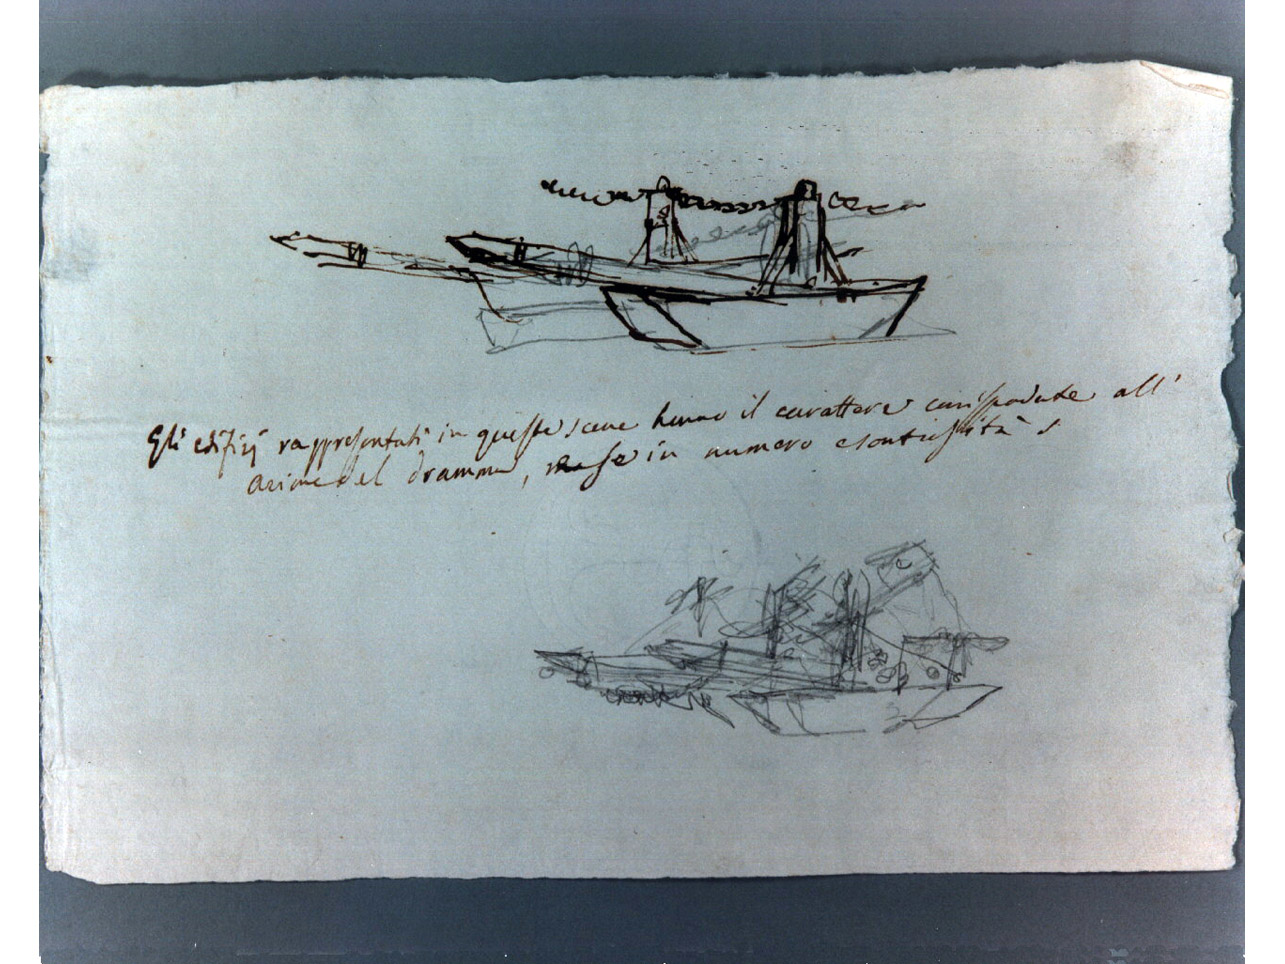 Gli edifizj rappresentati in queste scene hanno il carattere corrispondente all'
azione del dramma, in numero e